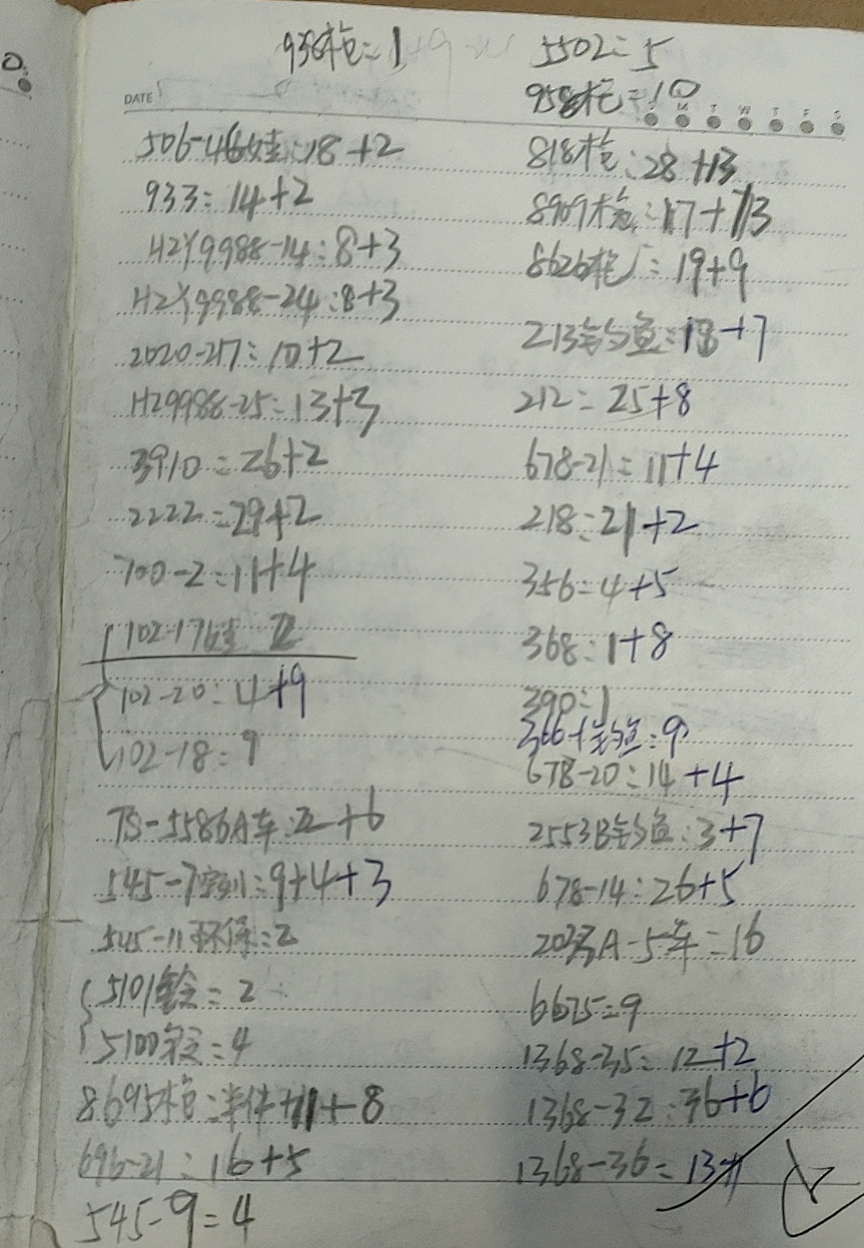 936枪=1
5502=5
958枪=10
DATE
M T W T F S
506-46娃:18+2
933=14+2
HZY9988-14:8+3
HZY9988-24:8+3
2020-217:10+2
HZ9988-25=13+3
3910=26+2
2222=29+2
700-2=11+4
102-17娃
102-20:4+9
102-18:9
TS-5586A车:2+6
545-7:9+4+3
545-11环保:2
5101=2
5100=4
8695枪:半件+11+8
696-21:16+5
545-9=4
818枪:28+13
8909枪:17+13
8626枪:19+9
213钓鱼:18+7
212=25+8
678-21=11+4
218:21+2
356=4+5
368:1+8
390:1
366-1钓鱼:9
678-20:14+4
2553B钓鱼:3+7
678-14:26+5
A-5车=16
6675=9
1368-35:12+2
1368-32:36+6
1368-36=13